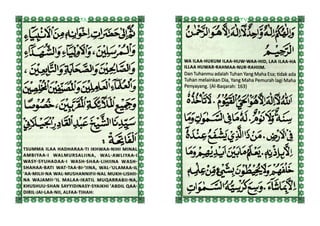 ثُمَّ إِلَى حَضَرَاتِ إِخْوَانِهِ مِنَ الْأَنْبِيَاءِ
وَالْمُرْسَلِيْنَ، وَالْأَوْلِيَاءِ وَالشُّهَدَاءِ
وَالصَّالِحِيْنَ وَالصَّحَابَةِ وَالتَّابِعِيْنَ،
وَالْعُلَمَاءِ الْعَامِلِيْنَ وَالْمُصَنِّفِيْنَ الْمُخْلِصِيْنَ
وَجَمِيْعِ الْمَلَائِكَةِ الْمُقَرَّبِيْنَ، خُصُوْصًا
سَيِّدِنَا الشَّيْخِ عَبْدِ الْقَادِرِ الْجِيْلَانِي
الْفَاتِحَةْ
TSUMMA ILAA HADHARAA-TI IKHWAA-NIHI MINAL
AMBIYAA-I WALMURSALIINA, WAL-AWLIYAA-I
WASY-SYUHADAA-I WASH-SHAA-LIHIINA WASH-
SHAHAA-BATI WAT-TAA-BI-'IINA, WAL-'ULAMAA-IL
'AA-MILII-NA WAL-MUSHANNIFII-NAL MUKH-LISHII-
NA WAJAMII-'IL MALAA-IKATIL MUQARRABII-NA,
KHUSHUU-SHAN SAYYIDINASY-SYAIKHI 'ABDIL QAA-
DIRIL JAI-LAA-NII, ALFAA-TIHAH:
وَإِلٰهُكُمْ إِلٰهٌ وَاحِدٌ لَا إِلٰهَ إِلَّا هُوَ الرَّحْمٰنُ
الرَّحِيْمُ
WA ILAA-HUKUM ILAA-HUW-WAA-HID, LAA ILAA-HA
ILLAA HUWAR-RAHMAA-NUR-RAHIIM.
Dan Tuhanmu adalah Tuhan Yang Maha Esa; tidak ada
Tuhan melainkan Dia, Yang Maha Pemurah lagi Maha
Penyayang. (Al-Baqarah: 163)
اَللّٰهُ لَا إِلٰهَ إِلَّا هُوَ الْحَيُّ الْقَيُّوْمُ. لَا تَأْخُذُهُ
سِنَةٌ وَلَا نَوْمٌ. لَهُ مَا فِي السَّمٰوَاتِ وَمَا
فِي الْأَرْضِ، مَنْ ذَا الَّذِيْ يَشْفَعُ عِنْدَهُ
إِلَّا بِإِذْنِهِ. يَعْلَمُ مَا بَيْنَ أَيْدِيْهِمْ وَمَا
خَلْفَهُمْ وَلَا يُحِيْطُوْنَ بِشَيْءٍ مِنْ عِلْمِهِ
إِلَّا بِمَا شَاءَ. وَسِعَ كُرْسِيُّهُ السَّمٰوَاتِ